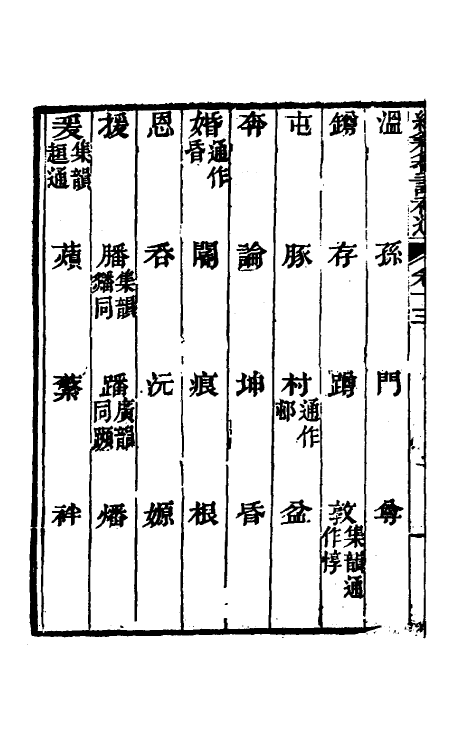 溫 孫 門 尊
鐏 存 蹲 敦集韻通作惇
屯 豚 村通作邨 盆
奔 論 坤 昏
婚通作昏 閽 痕 根
恩 吞 沅 嫄
援 膰集韻𤏐同 蹯廣韻同蹞 燔
爰集韻趄通 薠 蘩 袢